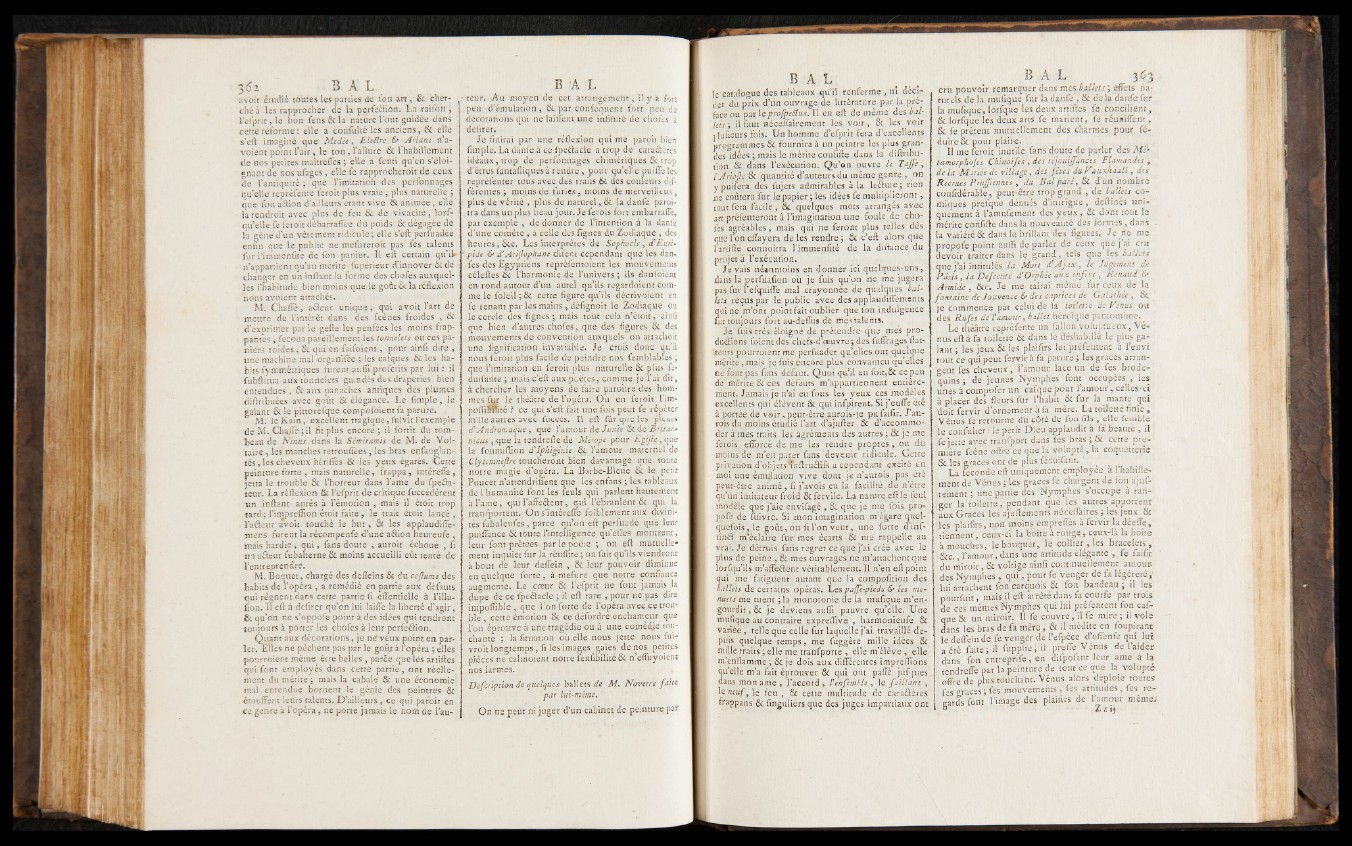 362 B A L
avoit étudié toutes les parties de son art, & cher-
ché à les rapprocher de la perfection. La raison,
l'esprit, le bon sens & la nature l'ont guidée dans
cette réforme: elle a consulté les anciens, & elle
s'est imaginé que Médée, Electre & Ariane n'a-
voient point l'air, le ton, l'allure & l'habillement
de nos petites maîtresses; elle a senti qu'en s'éloi-
gnant de nos usages, elle se rapprocheroit de ceux
de l'antiquité; que l'imitation des personnages
qu'elle représente seroit plus vraie, plus naturelle;
que son action d'ailleurs étant vive & animée, elle
la rendroit avec plus de feu & de vivacité, lors-
qu'elle se seroit débarrassée du poids & dégagée de
la gêne d'un vêtement ridicule; elle s'est persuadée
enfin que le public ne mesureroit pas ses talens
sur l'immensité de son panier. Il est certain qu'il
n'appartient qu'au mérite supérieur d'innover & de
changer en un instant la forme des choses auxquel-
les l'habitude bien moins que le goût & la réflexion
nous avoient attachés.
M. Chassé, acteur unique, qui avoit l'art de
mettre de l'intérêt dans des scènes froides, &
d'exprimer par le geste les pensées les moins frap-
pantes, secoua pareillement les tonnelets ou ces pa-
niers roides, & qui en faisoient, pour ainsi dire,
une machine mal organisée; les casques & les ha-
bits symmétriques furent aussi proscrits par lui: il
substitua aux tonnelets guindés des draperies bien
entendues, & aux panaches antiques des plumes
distribuées avec goût & élégance. Le simple, le
galant & le pittoresque composoient sa parure.
M. le Kain, excellent tragique, suivit l'exemple
de M. Chassé; il fit plus encore; il sortit du tom-
beau de Ninus dans la Sémiramis de M. de Vol-
taire, les manches retroussées, les bras ensanglan-
tés, les cheveux hérissés & les yeux égarés. Cette
peinture forte, mais naturelle, frappa, intéressa,
jetta le trouble & l'horreur dans l'ame du specta-
teur. La réflexion & l'esprit de critique succédèrent
un instant après à l'émotion, mais il étoit trop
tard; l'impression étoit faite, le trait étoit lancé,
l'acteur avoit touché le but, & les applaudisse-
mens furent la récompense d'une action heureuse,
mais hardie, qui, sans doute, auroit échoué, si
un acteur subalterne & moins accueilli eût tenté de
l'entreprendre.
M. Boquet, chargé des desseins & du costume des
habits de l'opéra, a remédié en partie aux défauts
qui règnent dans cette partie si essentielle à l'illu-
sion. Il est à desirer qu'on lui laisse la liberté d'agir,
& qu'on ne s'oppose point à des idées qui tendront
toujours à porter les choses à leur perfection.
Quant aux décorations, je ne veux point en par-
ler. Elles ne pêchent pas par le goût à l'opéra; elles
pourroient même être belles, parce que les artistes
qui sont employés dans cette partie, ont réelle-
ment du mérite; mais la cabale & une économie
mal entendue bornent le génie des peintres &
étouffent leurs talens. D'ailleurs, ce qui paroît en
ce genre à l'opéra, ne porte jamais le nom de l'au-
B A L
teur. Au moyen de cet arrangement, il y a fort
peu d'émulation, & par conséquent fort peu de
décorations qui ne laissent une infinité de choses à
desirer.
Je finirai par une réflexion qui me paroît bien
simple. La danse à ce spectacle a trop de caractères
idéaux, trop de personnages chimériques & trop
d'êtres fantastiques à rendre, pour qu'elle puisse les
représenter tous avec des traits & des couleurs dif-
férentes; moins de féries, moins de merveilleux,
plus de vérité, plus de naturel, & la danse paroî-
tra dans un plus beau jour. Je serois fort embarrassé,
par exemple, de donner de l'intention à la danse
d'une comète, à celle des signes du Zodiaque, des
heures, &c. Les interprètes de Sophocle, d'Euri-
pide & d'Aristophane disent cependant que les dan-
ses des Egyptiens représentoient les mouvemens
célestes & l'harmonie de l'univers; ils dansoient
en rond autour d'un autel qu'ils regardoient com-
me le soleil; & cette figure qu'ils décrivoient en
se tenant par les mains, désignoit le Zodiaque ou
le cercle des signes; mais tout cela n'étoit, ainsi
que bien d'autres choses, que des figures & des
mouvements de convention auxquels on attachoit
une signification invariable. Je crois donc qu'il
nous seroit plus facile de peindre nos semblables;
que l'imitation en seroit plus naturelle & plus sé-
duisante; mais c'est aux poètes, comme je l'ai dit,
à chercher les moyens de faire paroître des hom-
mes sur le théâtre de l'opéra. Où en seroit l'im-
possibilité? ce qui s'est fait une fois peut se répéter
mille autres avec succès. Il est sûr que les pleurs
d'Andromaque, que l'amour de Junie & de Britan-
nicus, que la tendresse de Mérope pour Egiste, que
la soumission d'Iphigénie & l'amour maternel de
Clytemnestre toucheront bien davantage que toute
notre magie d'opéra. La Barbe-Bleue & le petit
Poucet n'attendrissent que les enfans; les tableaux
de l'humanité sont les seuls qui parlent hautement
à l'ame, qui l'affectent, qui l'ébranlent & qui la
transportent. On s'intéresse foiblement aux divini-
tés fabuleuses, parce qu'on est persuadé que leur
puissance & toute l'intelligence qu'elles montrent,
leur sont prêtées par le poëte; on est nullement
inquiet sur la réussite; on sait qu'ils viendront
à bout de leur dessein, & leur pouvoir diminue
en quelque sorte, à mesure que notre confiance
augmente. Le cœur & l'esprit ne sont jamais la
dupe de ce spectacle; il est rare, pour ne pas dire
impossible, que l'on sorte de l'opéra avec ce trou-
ble, cette émotion & ce desordre enchanteur que
l'on éprouve à une tragédie ou à une comédie tou-
chante; la situation où elle nous jette nous sui-
vroit longtemps, si les images gaies de nos petites
pièces ne calmoient notre sensibilité & n'essuyoient
nos larmes.
Description de quelques ballets de M. Noverre faite
par lui-même.
On ne peut ni juger d'un cabinet de peinture par
B A L
le catalogue des tableaux qu'il renferme, ni déci-
der du prix d'un ouvrage de littérature par la pré-
face ou par le prospectus. Il en est de même des bal-
lets; il faut nécessairement les voir, & les voir
plusieurs fois. Un homme d'esprit fera d'excellents
programmes & fournira à un peintre les plus gran-
des idées; mais le mérite consiste dans la distribu-
tion & dans l'exécution. Qu'on ouvre le Tasse,
l'Arioste & quantité d'auteurs du même genre, on
y puisera des sujets admirables à la lecture; rien
ne coûtera sur le papier; les idées se multiplieront,
tout sera facile, & quelques mots arrangés avec
art présenteront à l'imagination une foule de cho-
ses agréables, mais qui ne seront plus telles dès
que l'on essayera de les rendre; & c'est alors que
l'artiste connoîtra l'immensité de la distance du
projet à l'exécution.
Je vais néanmoins en donner ici quelques-uns,
dans la persuasion où je suis qu'on ne me jugera
pas sur l'esquisse mal crayonnée de quelques bal-
lets reçus par le public avec des applaudissements
qui ne m'ont point fait oublier que son indulgence
fut toujours fort au-dessus de mes talens.
Je suis très-éloigné de prétendre que mes pro-
ductions soient des chefs-d'œuvre; des suffrages flat-
teurs pourroient me persuader qu'elles ont quelque
mérite, mais je suis encore plus convaincu qu'elles
ne sont pas sans défaut. Quoi qu'il en soit, & ce peu
de mérite & ces défauts m'appartiennent entière-
ment. Jamais je n'ai eu sous les yeux ces modèles
excellents qui élèvent & qui inspirent. Si j'eusse été
à portée de voir, peut-être aurois-je pu saisir. J'au-
rois du moins étudié l'art d'ajuster & d'accommo-
der à mes traits les agréments des autres, & je me
serois efforcé de me les rendre propres, ou du
moins de m'en parer sans devenir ridicule. Cette
privation d'objets instructifs a cependant excité en
moi une émulation vive dont je n'aurois pas été
peut-être animé, si j'avois eu la facilité de n'être
qu'un imitateur froid & servile. La nature est le seul
modèle que j'aie envisagé, & que je me sois pro-
posé de suivre. Si mon imagination m'égare quel-
quefois, le goût, ou si l'on veut, une sorte d'ins-
tinct m'éclaire sur mes écarts & me rappelle au
vrai. Je détruis sans regret ce que j'ai créé avec le
plus de peine, & mes ouvrages ne m'attachent que
lorsqu'ils m'affectent véritablement. Il n'en est point
qui me fatiguent autant que la composition des
ballets de certains opéras. Les passe-pieds & les me-
nuets me tuent; la monotonie de la musique m'en-
gourdit, & je deviens aussi pauvre qu'elle. Une
musique au contraire expressive, harmonieuse &
variée, telle que celle sur laquelle j'ai travaillé de-
puis quelque temps, me suggère mille idées &
mille traits; elle me transporte, elle m'élève, elle
m'enflamme; & je dois aux différentes impressions
qu'elle m'a fait éprouver & qui ont passé jusques
dans mon ame, l'accord, l'ensemble, le saillant,
le neuf, le feu, & cette multitude de caractères
frappans & singuliers que des juges impartiaux ont
B A L 363
cru pouvoir remarquer dans mes ballets; effets na-
turels de la musique sur la danse, & de la danse sur
la musique, lorsque les deux artistes se concilient,
& lorsque les deux arts se marient, se réunissent,
& se prêtent mutuellement des charmes pour sé-
duire & pour plaire.
Il me seroit inutile sans doute de parler des Mé-
tamorphoses Chinoises, des réjouissances Flamandes,
de la Mariée de village, des fêtes du Vauxhaall, des
Recrues Prussiennes, du Bal paré, & d'un nombre
considérable, peut-être trop grand, de ballets co-
miques presque dénués d'intrigue, destinés uni-
quement à l'amusement des yeux, & dont tout le
mérite consiste dans la nouveauté des formes, dans
la variété & dans le brillant des figures. Je ne me
propose point aussi de parler de ceux que j'ai cru
devoir traiter dans le grand, tels que les ballets
que j'ai intitulés la Mort d'Ajax, le Jugement de
Pâris, la Descente d'Orphée aux enfers, Renaud &
Armide, &c. Je me tairai même sur ceux de la
fontaine de Jouvence & des caprices de Galathée, &
je commence par celui de la toilette de Vénus ou
des Ruses de l'amour, ballet héroïque pantomime.
Le théâtre représente un sallon voluptueux, Vé-
nus est à sa toilette & dans le deshabillé le plus ga-
lant; les jeux & les plaisirs lui présentent à l'envi
tout ce qui peut servir à sa parure; les graces arran-
gent ses cheveux, l'amour lace un de ses brode-
quins; de jeunes Nymphes sont occupées, les
unes à composer un casque pour l'amour, celles-ci
à placer des fleurs sur l'habit & sur la mante qui
doit servir d'ornement à sa mère. La toilette finie,
Vénus se retourne du côté de son fils, elle semble
le consulter: le petit Dieu applaudit à sa beauté, il
se jette avec transport dans ses bras; & cette pre-
mière scène offre ce que la volupté, la coquetterie
& les graces ont de plus séduisant.
La seconde est uniquement employée à l'habille-
ment de Vénus; les graces se chargent de son ajus-
tement; une partie des Nymphes s'occupe à ran-
ger la toilette, pendant que les autres apportent
aux Graces les ajustements nécessaires; les jeux &
les plaisirs, non moins empressés à servir la déesse,
tiennent, ceux-ci la boîte à rouge, ceux-là la boîte
à mouches, le bouquet, le collier, les bracelets,
&c., l'amour, dans une attitude élégante, se saisit
du miroir, & voltige ainsi continuellement autour
des Nymphes, qui, pour se venger de sa légéreté,
lui arrachent son carquois & son bandeau; il les
poursuit, mais il est arrêté dans sa course par trois
de ces mêmes Nymphes qui lui présentent son cas-
que & un miroir. Il se couvre, il se mire; il vole
dans les bras de sa mère, & il médite en soupirant
le dessein de se venger de l'espèce d'offense qui lui
a été faite; il supplie, il presse Vénus de l'aider
dans son entreprise, en disposant leur ame à la
tendresse par la peinture de tout ce que la volupté
offre de plus touchant. Vénus alors déploie toutes
ses graces; ses mouvements, ses attitudes, ses re-
gards sont l'image des plaisirs de l'amour même.
Z z ij